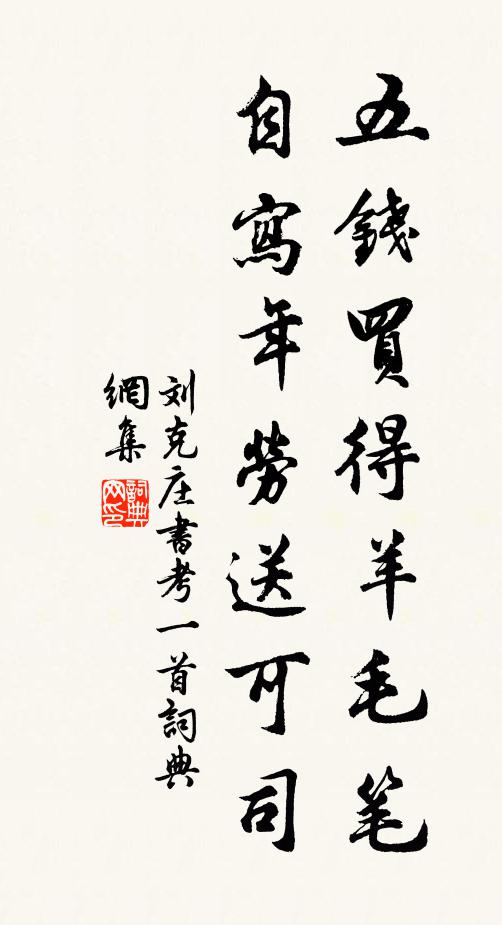 五錢買得羊毛笔
自寫年勞送可司
刘克庄書考一首詞典
網集
詞典网印